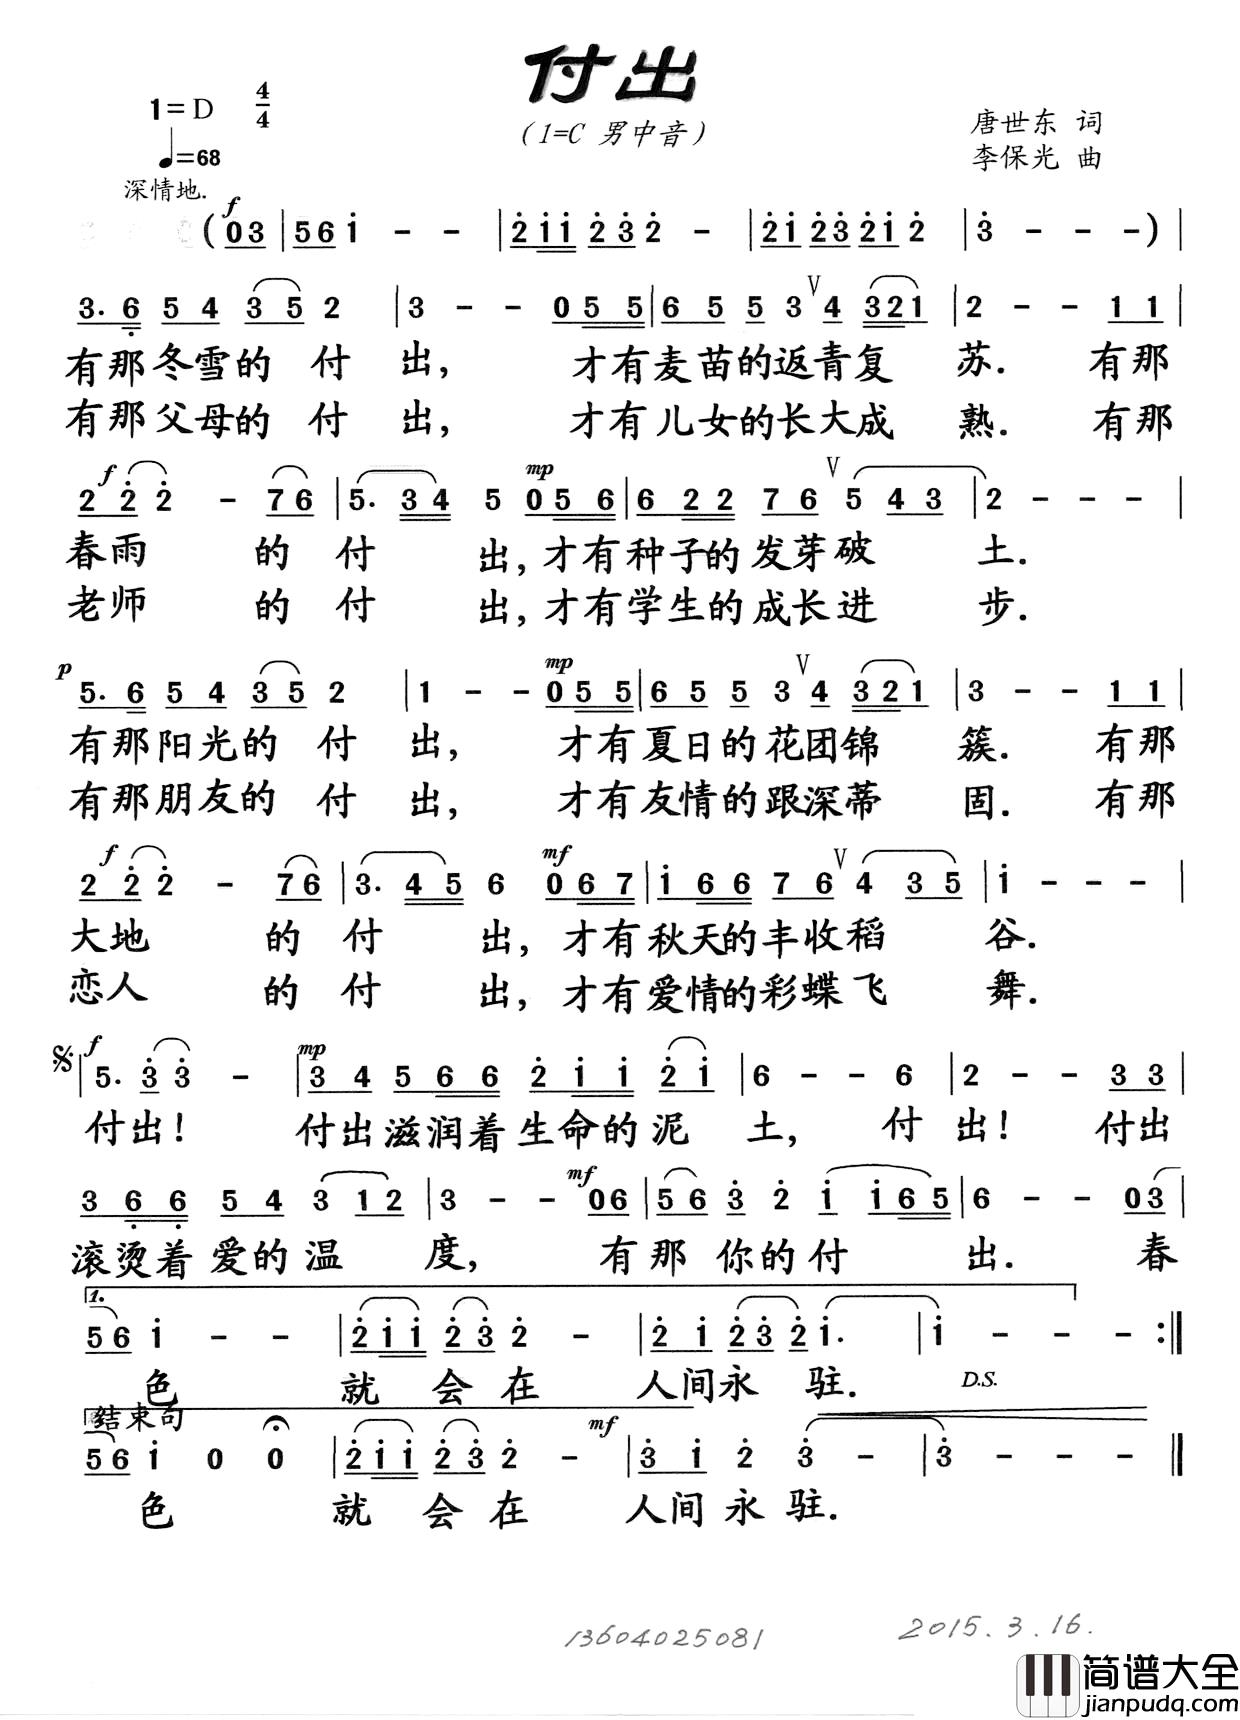 付出
1=D 4/4
(1=C 男中音)
唐世东 词
♩=68
李保光 曲
深情地.
f
(03 |56i - - |2ii 232 - |2i 232i2 |3 - - -) |
3. 6 54 35 2 |3 - - 055 |655 3 V 4 321 |2 - - 11 |
有那冬雪的 付 出, 才有麦苗的返青复 苏. 有那
有那父母的 付 出, 才有儿女的长大成 熟. 有那
f mp V
2 2 2 - 76 |5. 34 5 056 |622 76 5 43 |2 - - - |
春雨 的 付 出, 才有种子的发芽破 土.
老师 的 付 出, 才有学生的成长进 步.
p mp V
5. 6 54 35 2 |1 - - 055 |655 3 4 321 |3 - - 11 |
有那阳光的 付 出, 才有夏日的花团锦 簇. 有那
有那朋友的 付 出, 才有友情的跟深蒂 固. 有那
f mf V
2 2 2 - 76 |3. 45 6 067 |i66 76 4 35 |i - - - |
大地 的 付 出, 才有秋天的丰收稻 谷.
恋人 的 付 出, 才有爱情的彩蝶飞 舞.
f mp
|5. 3 3 - |34 566 2ii 2i |6 - - 6 |2 - - 33 |
付出! 付出滋润着生命的泥 土, 付 出! 付出
mf
366 54 3 12 |3 - - 06 |56 3 2 i i65 |6 - - 03 |
滚烫着 爱的温 度, 有那 你的付 出. 春
1.
56 i - - |2ii 23 2 - |2 i 232i. |i - - - :||
色 就 会 在 人间永 驻. D.S.
结束句
mf
56 i 0 0 |2ii 23 2 - |3 i 2 3 - |3 - - - ||
色 就 会 在 人间永 驻.
13604025081
2015.3.16.
简谱大全
jianpudq.com